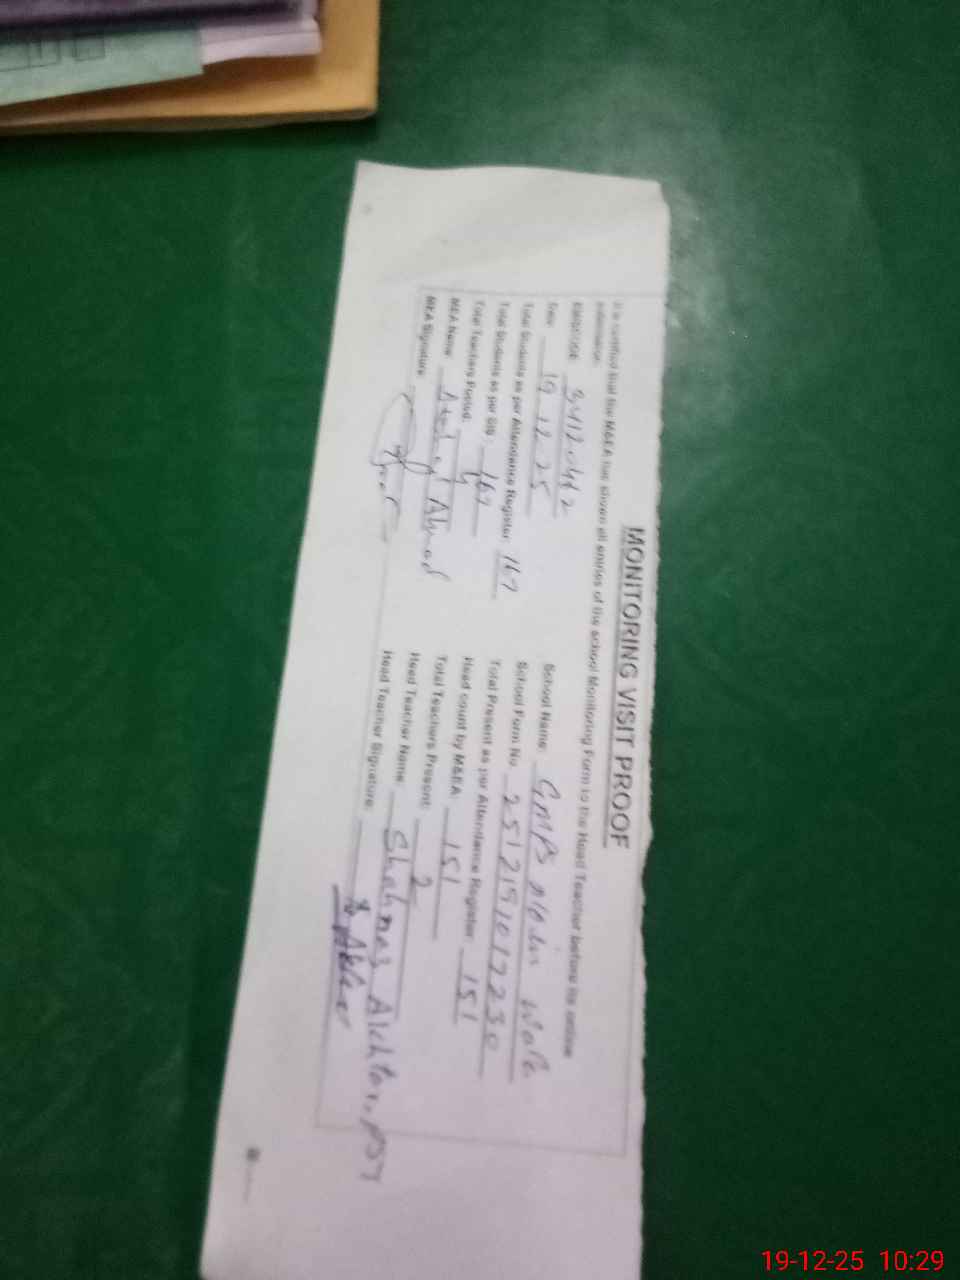 MONITORING VISIT PROOF
It is certified that the M&EA has shown all entries of the school Monitoring Form to the Head Teacher before its online
submission.
School Name: GMPS
Date: 19.12.25 School Form No 2512191017230
Total Students as per Attendance Register: 167 Total Present as per Attendance Register: 151
Total Students as per SIS: 167 Head count by M&EA: 151
Total Teachers Posted: Total Teachers Present: 2
MEA Name: Ahmad Head Teacher Name: Shahnaz Akhtar, PST
MEA Signature: Head Teacher Signature: S Akhtar
19-12-25 10:29